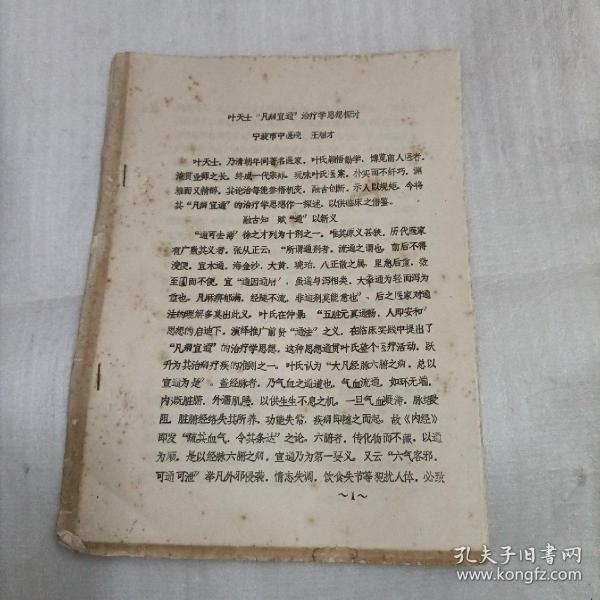 叶天士“凡病宜通”治疗学思想探讨
宁波市中医院 王
叶天士，乃清朝年间著名医家，叶氏颖悟勤学，博览前人医著，
演贯业师之长，终成一代宗师。玩味叶氏医案，朴实而不纤巧，渊
雅而又精醇，其论治每能参悟机变，融古创新，示人以规矩，今将
其“凡病宜通”的治疗学思想作一探述，以供临床之借鉴。
融古知 赋“通”以新义
“通可去滞”徐之才列为十剂之一。唯其原义甚狭，历代医家
有广敷其义者。张从正云：“所谓通剂者，流通之谓也，前后不得
溲便，宜木通、海金沙、大黄、琥珀、八正散之属，里急后重，数
至圊而不便，宜“通因通用”，虽通与泻相类，大率通为轻而泻为
重也，凡麻痹郁满，经隧不流，非通剂莫能愈也”，后之医家对通
法的理解多莫出此义。叶氏在仲景“五脏元真通畅，人即安和”
思想的启迪下，演绎推广前贤“通法”之义，在临床实践中提出了
“凡病宜通”的治疗学思想，这种思想通贯叶氏整个医疗活动，跃
升为其治病疗疾的准则之一。叶氏认为“大凡经脉六腑之病，总以
宣通为是”。盖经脉者，乃气血之通道也，气血流通，如环无端，
内溉脏腑，外濡肌腠，以供生生不息之机，一旦气血凝滞，脉络瘀
阻，脏腑经络失其所养，功能失常，疾病即随之而起，故《内经》
即发“疏其血气，令其条达”之论，六腑者，传化物而不藏，以通
为顺，是以经脉六腑之病，宣通乃为第一要义。又云“六气客邪，
可通可泄”举凡外邪侵袭，情志失调，饮食失节等犯扰人体，必致
～1～
孔夫子旧书网
www.kongfz.com